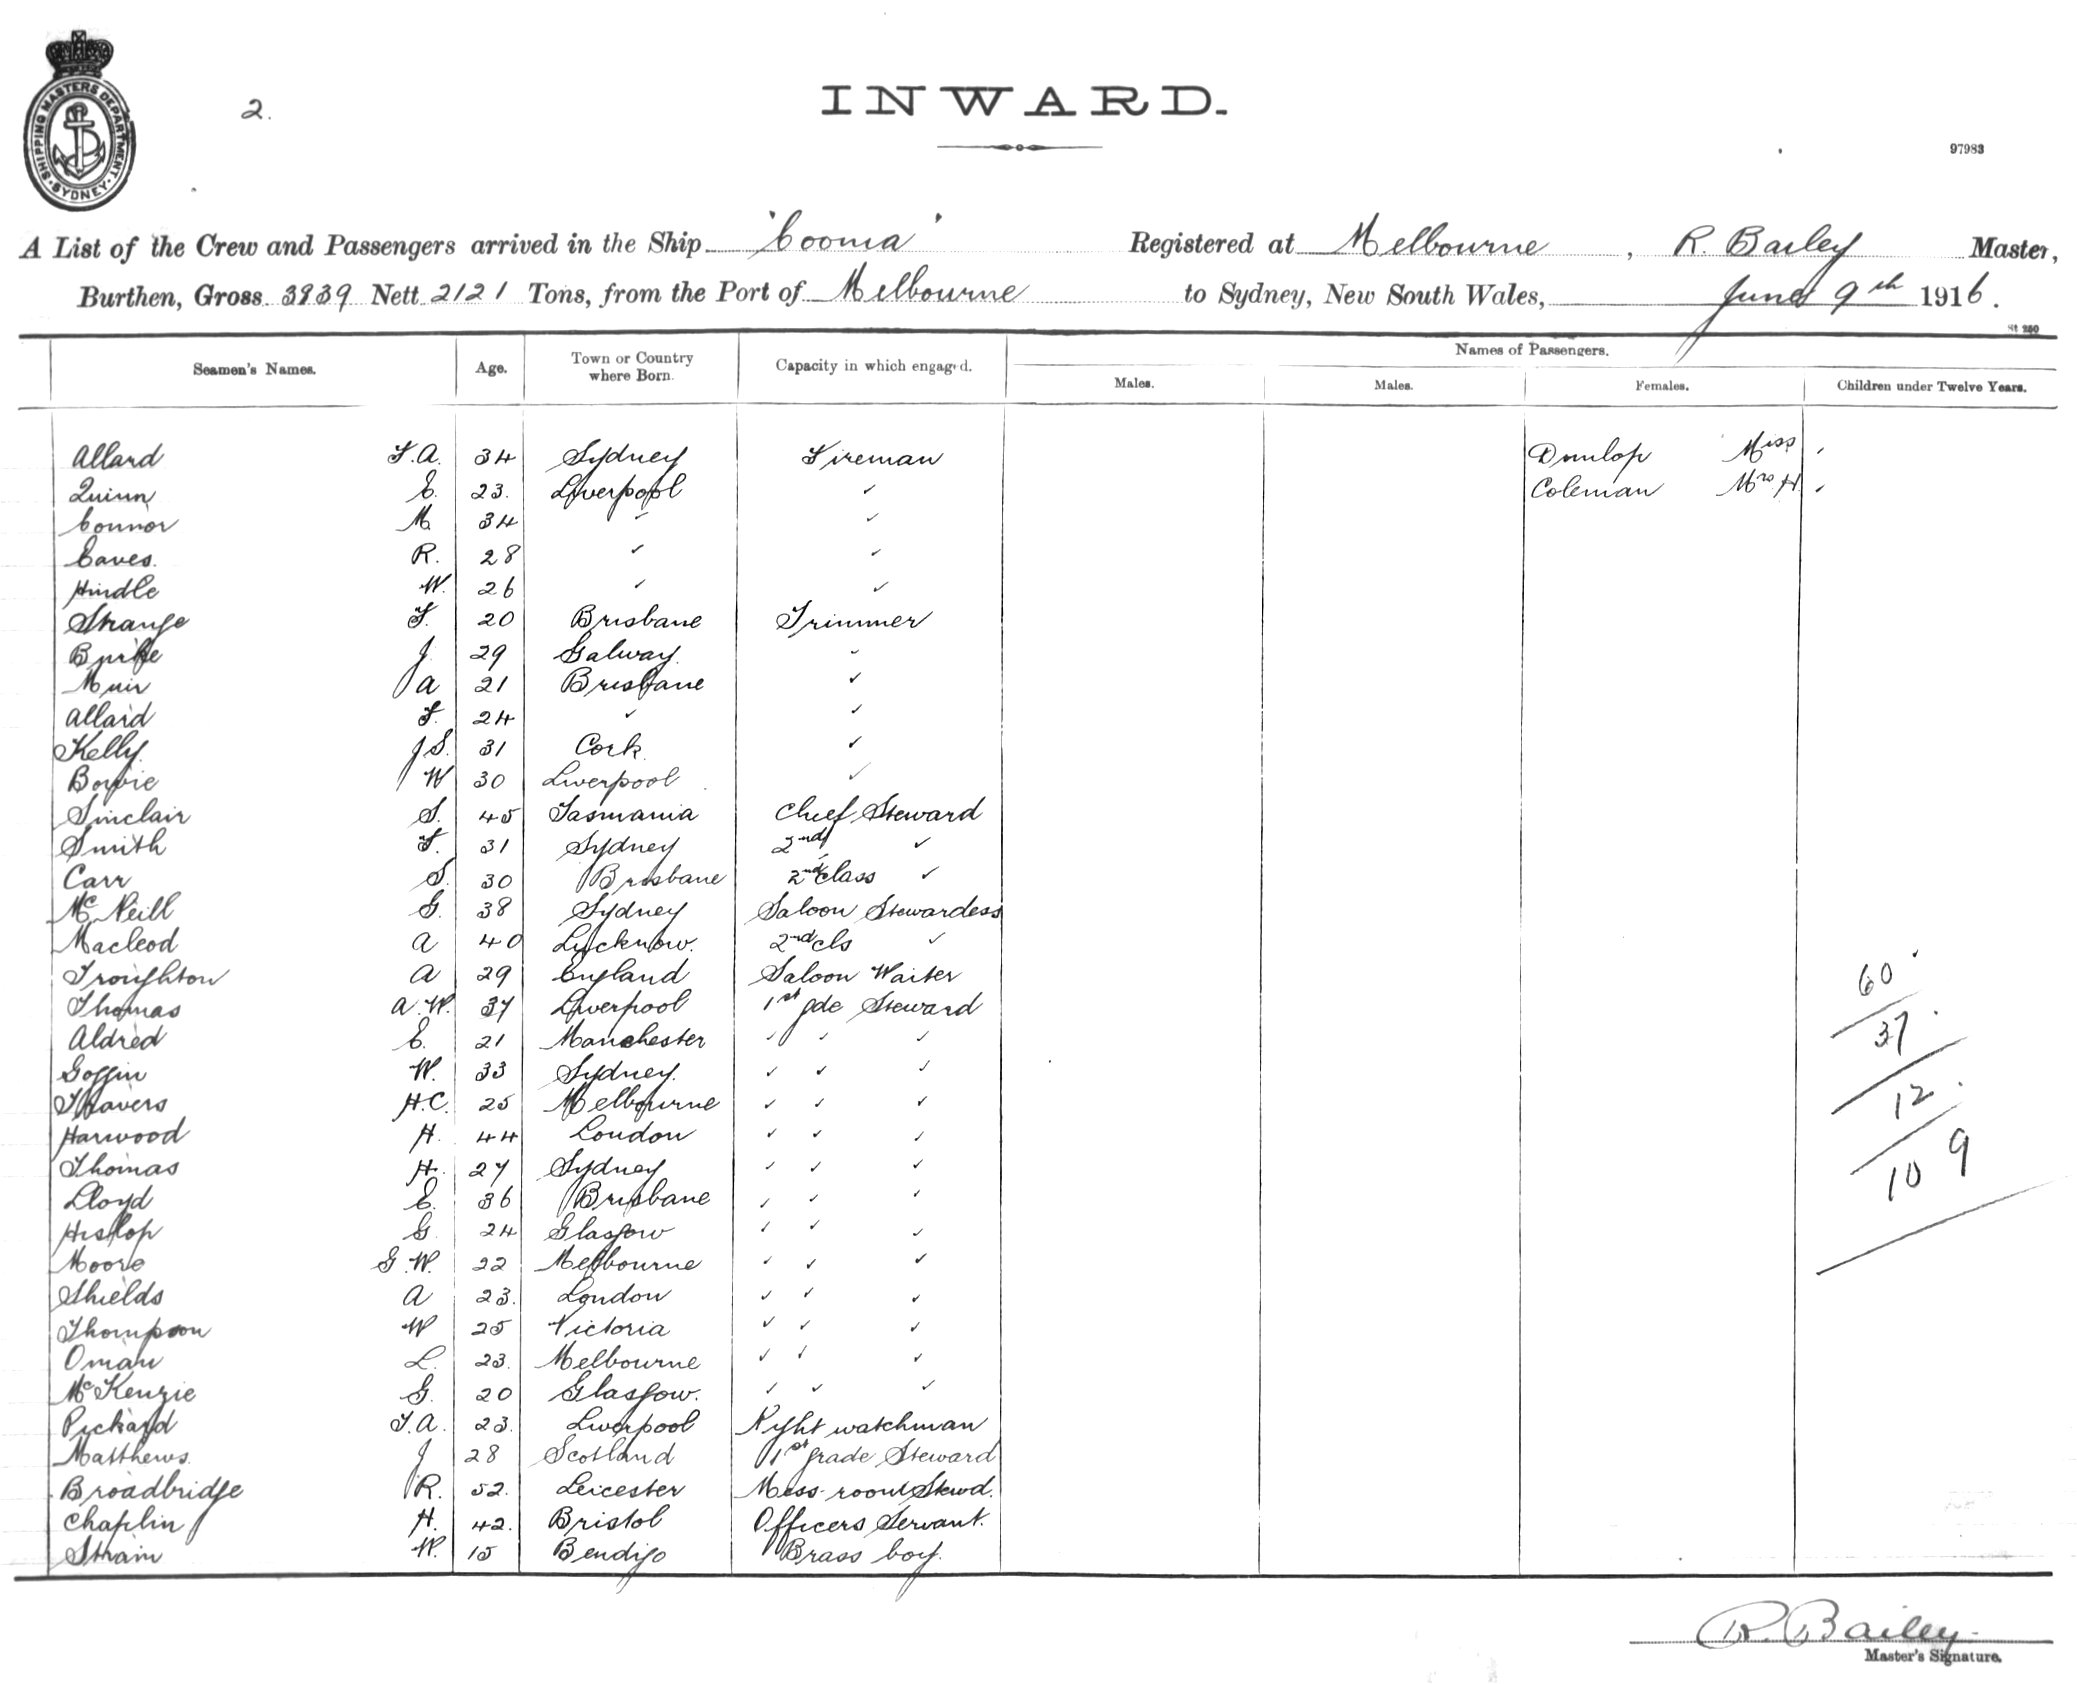 SHIPPING MASTERS DEPARTMENT · SYDNEY ·
2.
INWARD.
97983
A List of the Crew and Passengers arrived in the Ship 'Cooma' Registered at Melbourne, R. Bailey Master,
Burthen, Gross 3939 Nett 2121 Tons, from the Port of Melbourne to Sydney, New South Wales, June 9th 1916.
St 250
Seamen's Names. Age. Town or Country where Born. Capacity in which engaged. Names of Passengers.
Males. Males. Females. Children under Twelve Years.
Allard F.A. 34 Sydney Fireman Dunlop Miss
Quinn E. 23. Liverpool ✓ Coleman Mrs H
Connor M 34 ✓ ✓
Eaves. R. 28 ✓ ✓
Hindle W. 26 ✓ ✓
Strange F. 20 Brisbane Trimmer
Burke J 29 Galway. ✓
Muir A 21 Brisbane ✓
Allard F. 24 ✓ ✓
Kelly. J.S. 31 Cork ✓
Bowie W 30 Liverpool ✓
Sinclair S. 45 Tasmania Chief Steward
Smith F. 31 Sydney 2nd ✓
Carr S. 30 Brisbane 2nd class ✓
McNeill G. 38 Sydney Saloon Stewardess
Macleod A 40 Lucknow. 2nd cls ✓
Troughton A 29 England Saloon Waiter 60
Thomas A.W. 37 Liverpool 1st gde Steward 37
Aldred E. 21 Manchester ✓ ✓ ✓
Goffin W. 33 Sydney. ✓ ✓ ✓
Travers H.C. 25 Melbourne ✓ ✓ ✓ 12
Harwood H. 44 London ✓ ✓ ✓
Thomas H. 27 Sydney ✓ ✓ ✓ 109
Lloyd E. 36 Brisbane ✓ ✓ ✓
Hislop G. 24 Glasgow ✓ ✓ ✓
Moore G.W. 22 Melbourne ✓ ✓ ✓
Shields A 23. London ✓ ✓ ✓
Thompson W 25 Victoria ✓ ✓ ✓
Oman L. 23. Melbourne ✓ ✓ ✓
McKenzie G. 20 Glasgow. ✓ ✓ ✓
Pickard T.A. 23. Liverpool Night watchman
Matthews. J 28 Scotland 1st grade Steward
Broadbridge R. 52. Leicester Mess-room Stewd.
Chaplin H. 42. Bristol Officers Servant.
Strain W. 15 Bendigo Brass boy.
R. Bailey
Master's Signature.